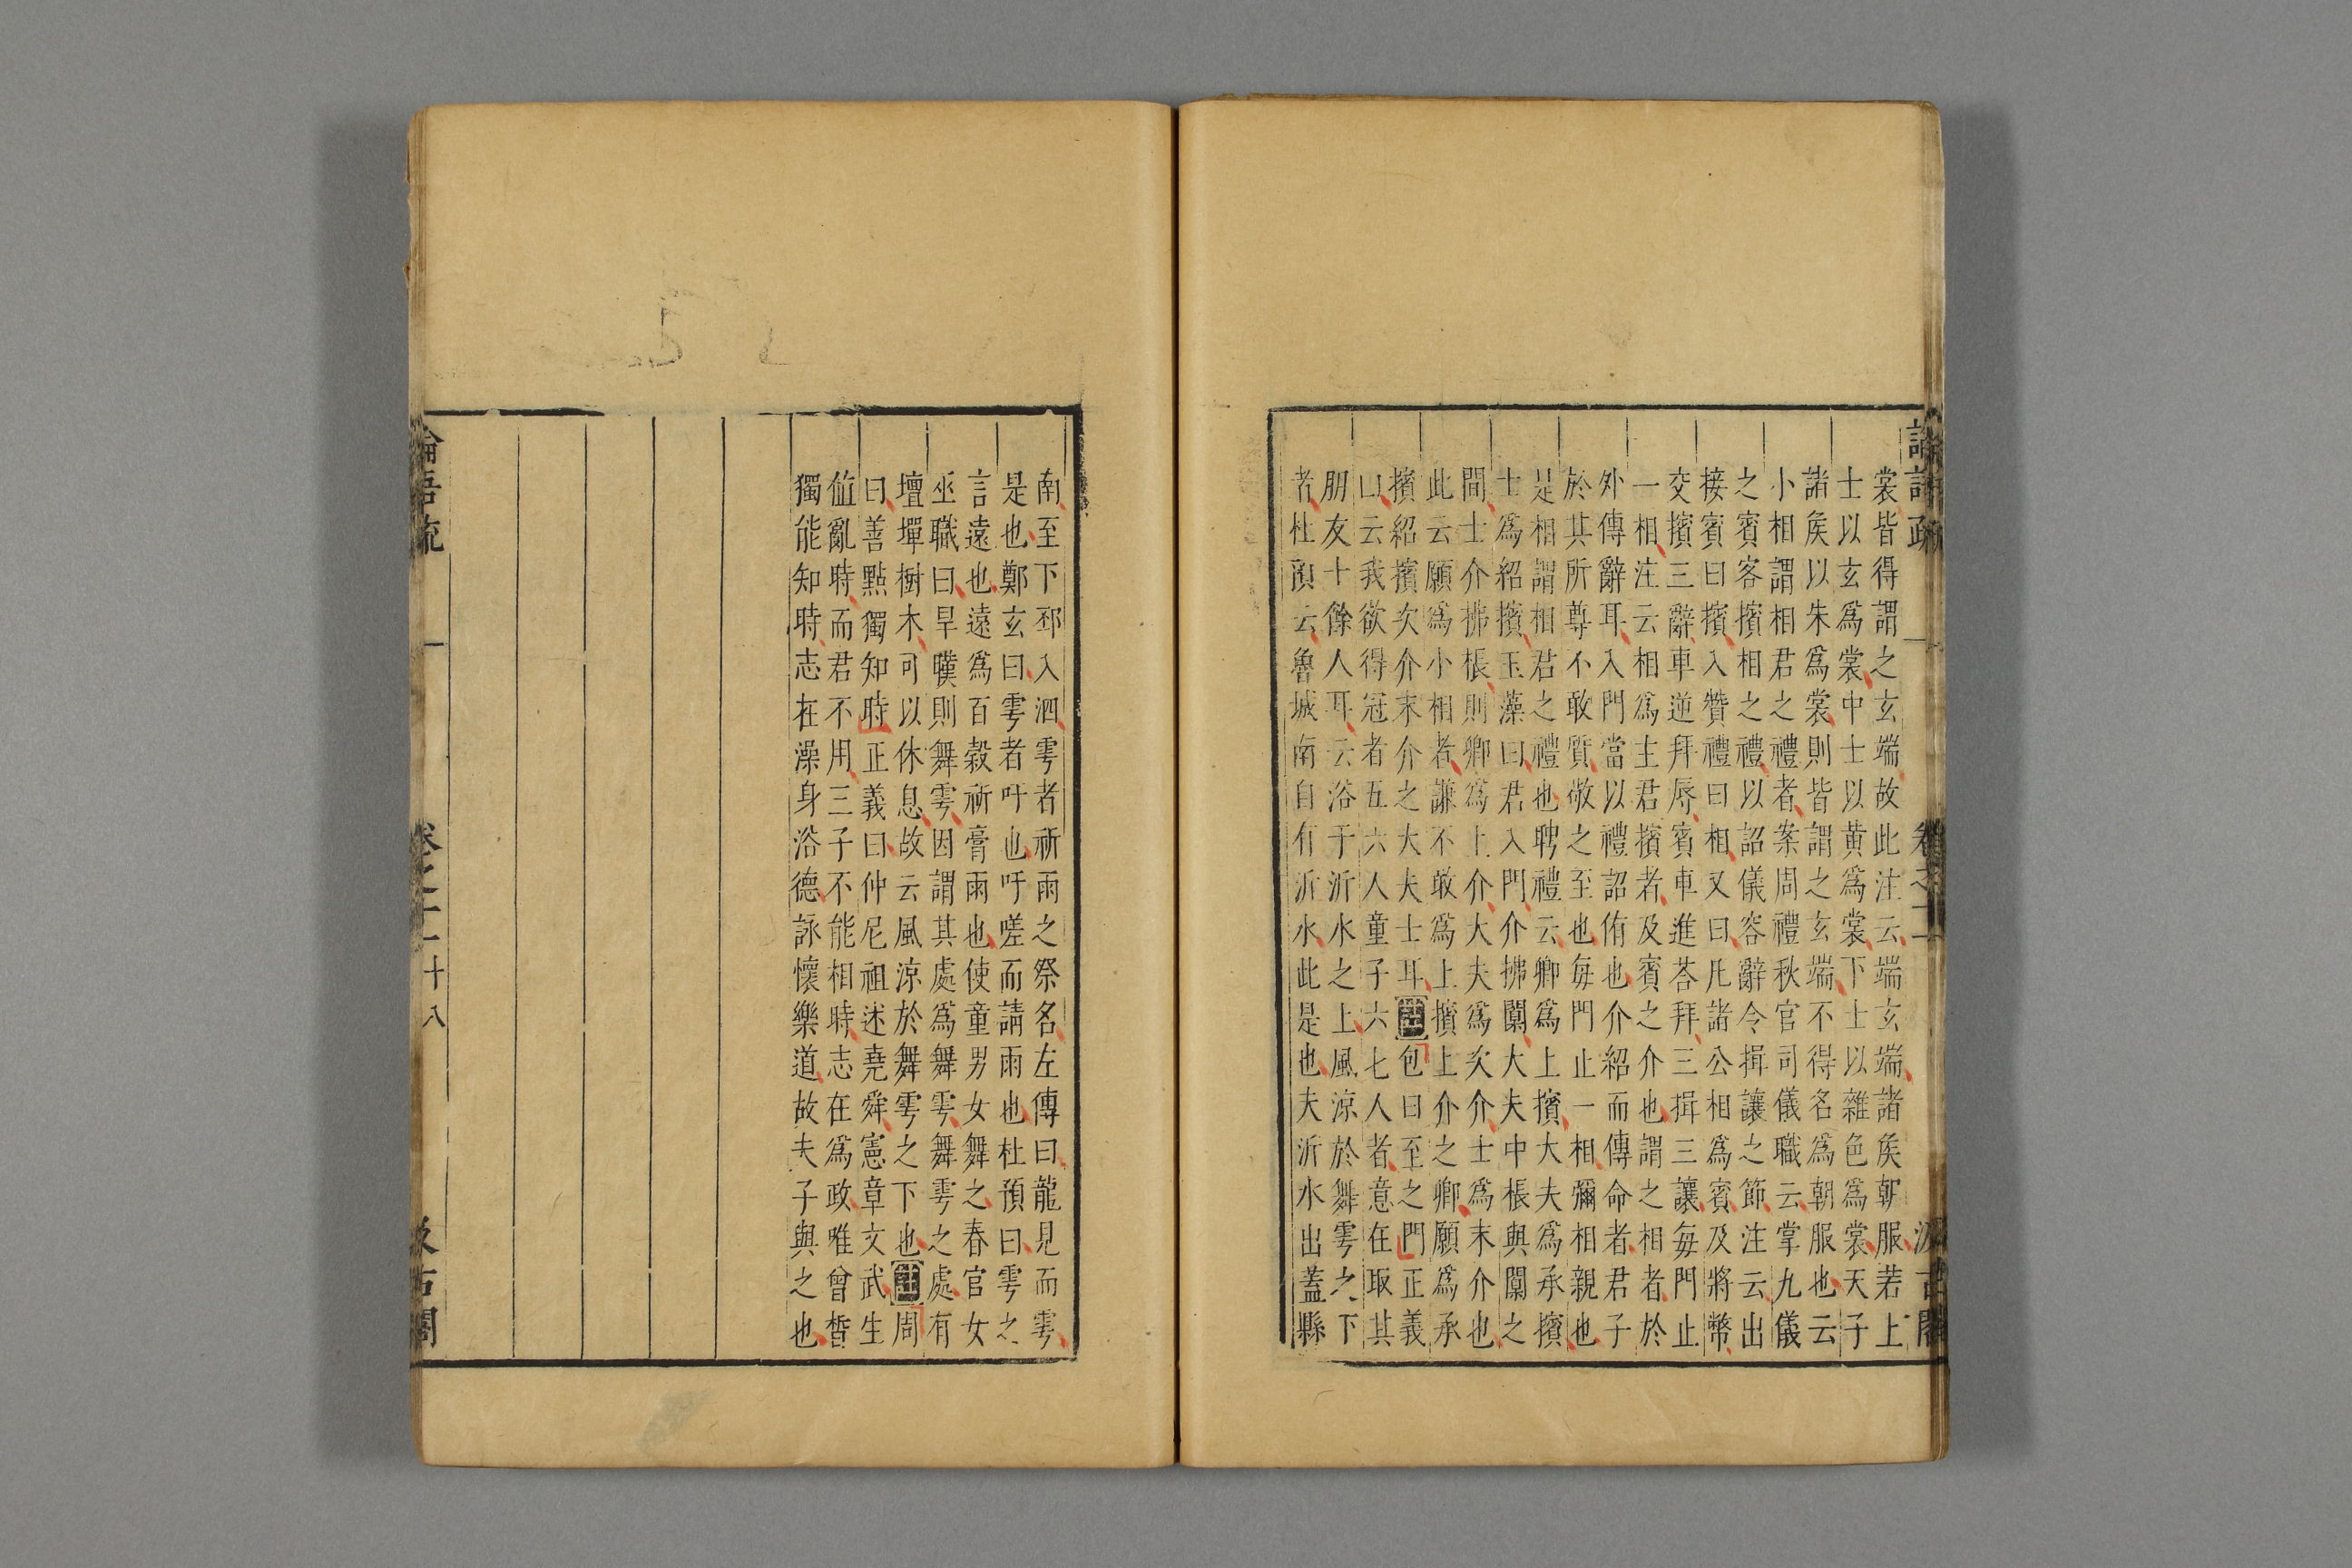 裳皆得謂之玄端故此注云端玄端諸矦朝服若上
士以玄爲裳中士以黄爲裳下士以雜色爲裳天子
諸矦以朱爲裳則皆謂之玄端不得名爲朝服也云
小相謂相君之禮者案周禮秋官司儀職云掌九儀
之賓客擯相之禮以詔儀容辭令揖讓之節注云出
接賓曰擯入贊禮曰相又曰凡諸公相爲賓及將幣
交擯三辭車逆拜辱賓車進荅拜三揖三讓每門止
一相注云相爲主君擯者及賓之介也謂之相者於
外傳辭耳入門當以禮詔侑也介紹而傳命者君子
於其所尊不敢質敬之至也每門止一相彌相親也
是相謂相君之禮也聘禮云卿爲上擯大夫爲承擯
士爲紹擯玉藻曰君入門介拂闑大夫中棖與闑之
間士介拂棖則卿爲上介大夫爲次介士爲末介也
此云願爲小相者謙不敢爲上擯上介之卿願爲承
擯紹擯次介末介之大夫士耳註包曰至之門正義
曰云我欲得冠者五六人童子六七人者意在取其
朋友十餘人耳云浴于沂水之上風涼於舞雩之下
者杜預云魯城南自有沂水此是也夫沂水出蓋縣
論語疏 卷之十一 汲古閣
南至下邳入泗雩者祈雨之祭名左傳曰龍見而雩
是也鄭玄曰雩者吁也吁嗟而請雨也杜預曰雩之
言遠也遠爲百穀祈膏雨也使童男女舞之春官女
巫職曰旱暵則舞雩因謂其處爲舞雩舞雩之處有
壇墠樹木可以休息故云風涼於舞雩之下也註周
曰善點獨知時正義曰仲尼祖述堯舜憲章文武生
値亂時而君不用三子不能相時志在爲政唯曾晳
獨能知時志在澡身浴德詠懷樂道故夫子與之也
論語疏 卷之十一 十八 汲古閣